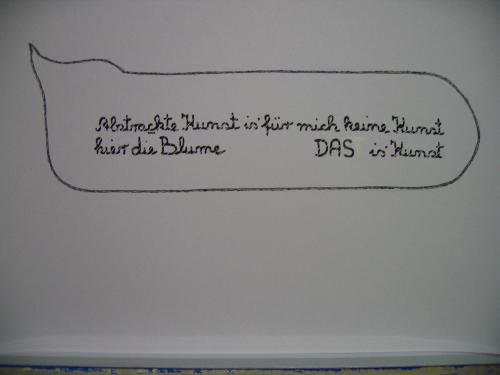 Abstrackte Kunst is' für mich keine Kunst
hier die Blume DAS is' Kunst